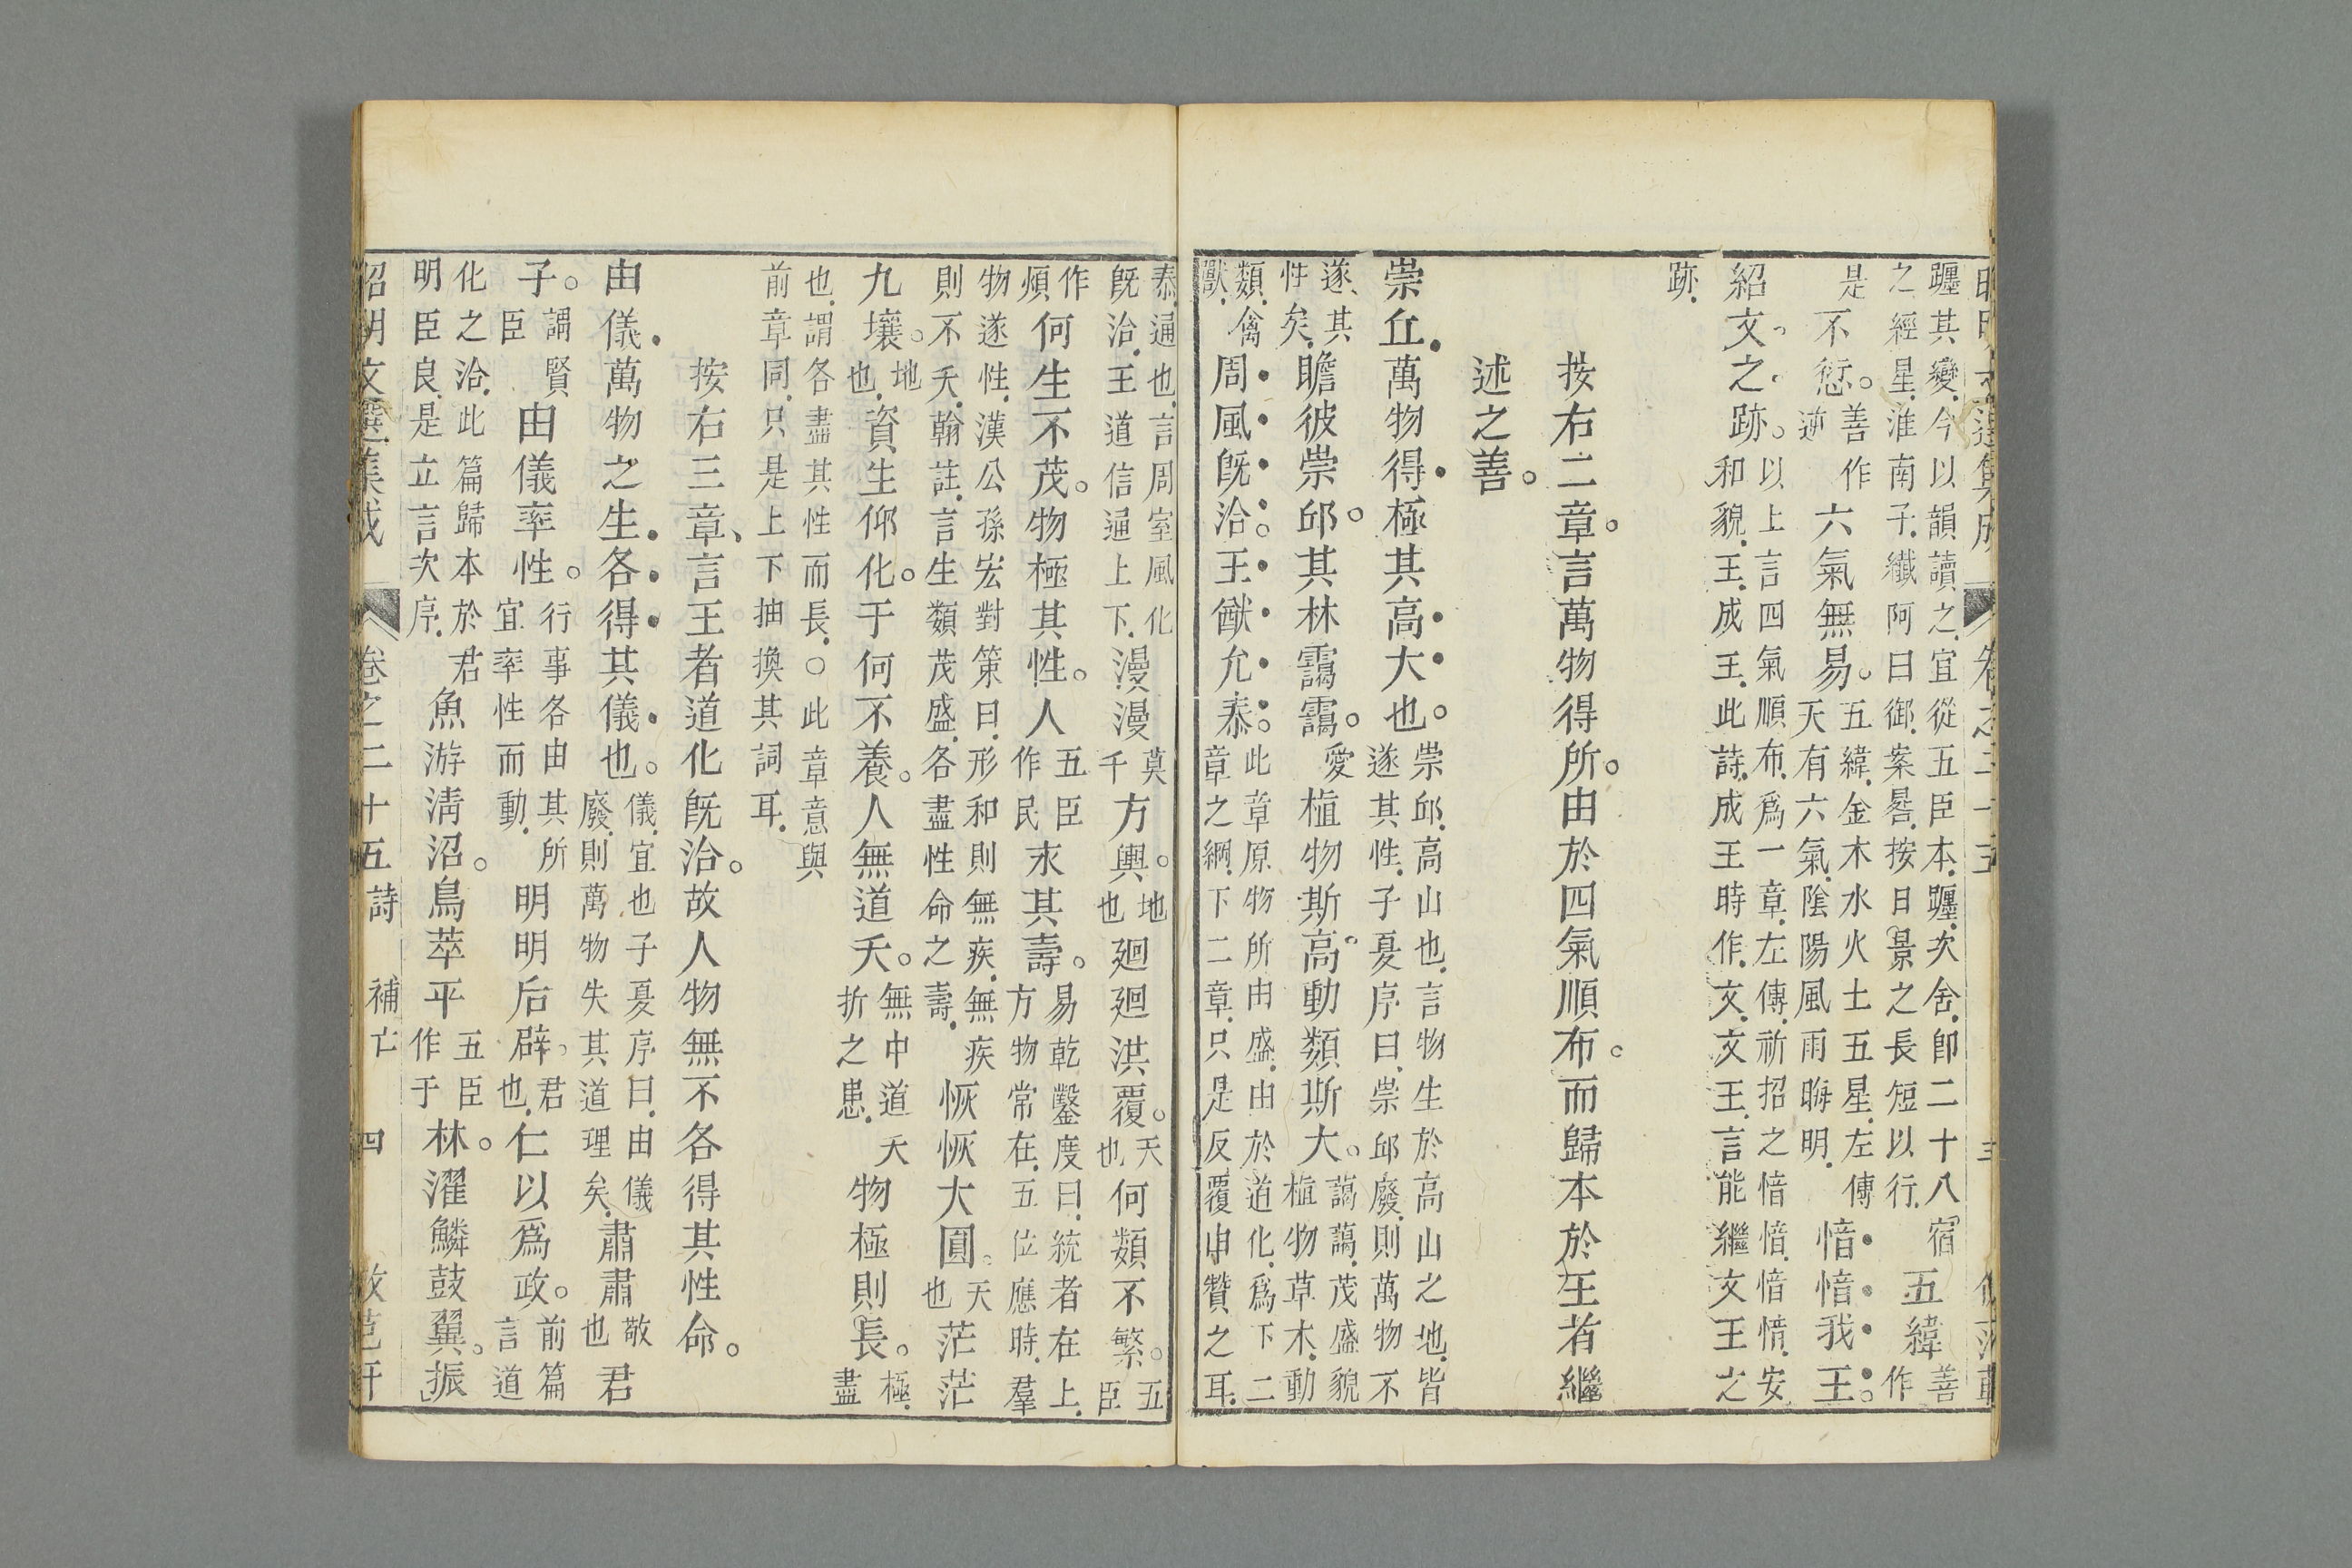 躔其變今以韻讀之宜從五臣本躔次舍卽二十八宿五緯善
之經星淮南子纖阿曰御案晷按日景之長短以行作
是不愆善作六氣無易五緯金木水火土五星左傳愔愔我王
逆天有六氣陰陽風雨晦明
紹文之跡以上言四氣順布爲一章左傳祈招之愔愔愔愔安
和貌王成王此詩成王時作文文王言能繼文王之
跡
按右二章言萬物得所由於四氣順布而歸本於王者繼
述之善
崇丘萬物得極其高大也崇邱高山也言物生於高山之地皆
遂其性子夏序曰崇邱廢則萬物不
遂其性矣瞻彼崇邱其林靄靄愛植物斯高動類斯大藹藹茂盛貌
植物草木動
類禽獸周風旣洽王猷允泰此章原物所由盛由於道化爲下二
章之綱下二章只是反覆申贊之耳
泰通也言周室風化
旣洽王道信通上下漫漫莫千方輿地也廻廻洪覆天也何類不繁五臣
作煩何生不茂物極其性人五臣作民永其壽易乾鑿度曰統者在上
方物常在五位應時羣
物遂性漢公孫宏對策曰形和則無疾無疾
則不夭翰註言生類茂盛各盡性命之壽恢恢大圓天也茫茫
九壤地也資生仰化于何不養人無道夭無中道夭折之患物極則長極盡
也謂各盡其性而長○此章意與
前章同只是上下抽換其詞耳
按右三章言王者道化旣洽故人物無不各得其性命
由儀萬物之生各得其儀也儀宜也子夏序曰由儀
廢則萬物失其道理矣肅肅敬也君
子謂賢臣由儀率性行事各由其所
宜率性而動明明后辟君也仁以爲政前篇
言道
化之洽此篇歸本於君
明臣良是立言次序魚游淸沼鳥萃平五臣作于林濯鱗鼓翼振
昭明文選集成
卷之二十五詩　補亡　四